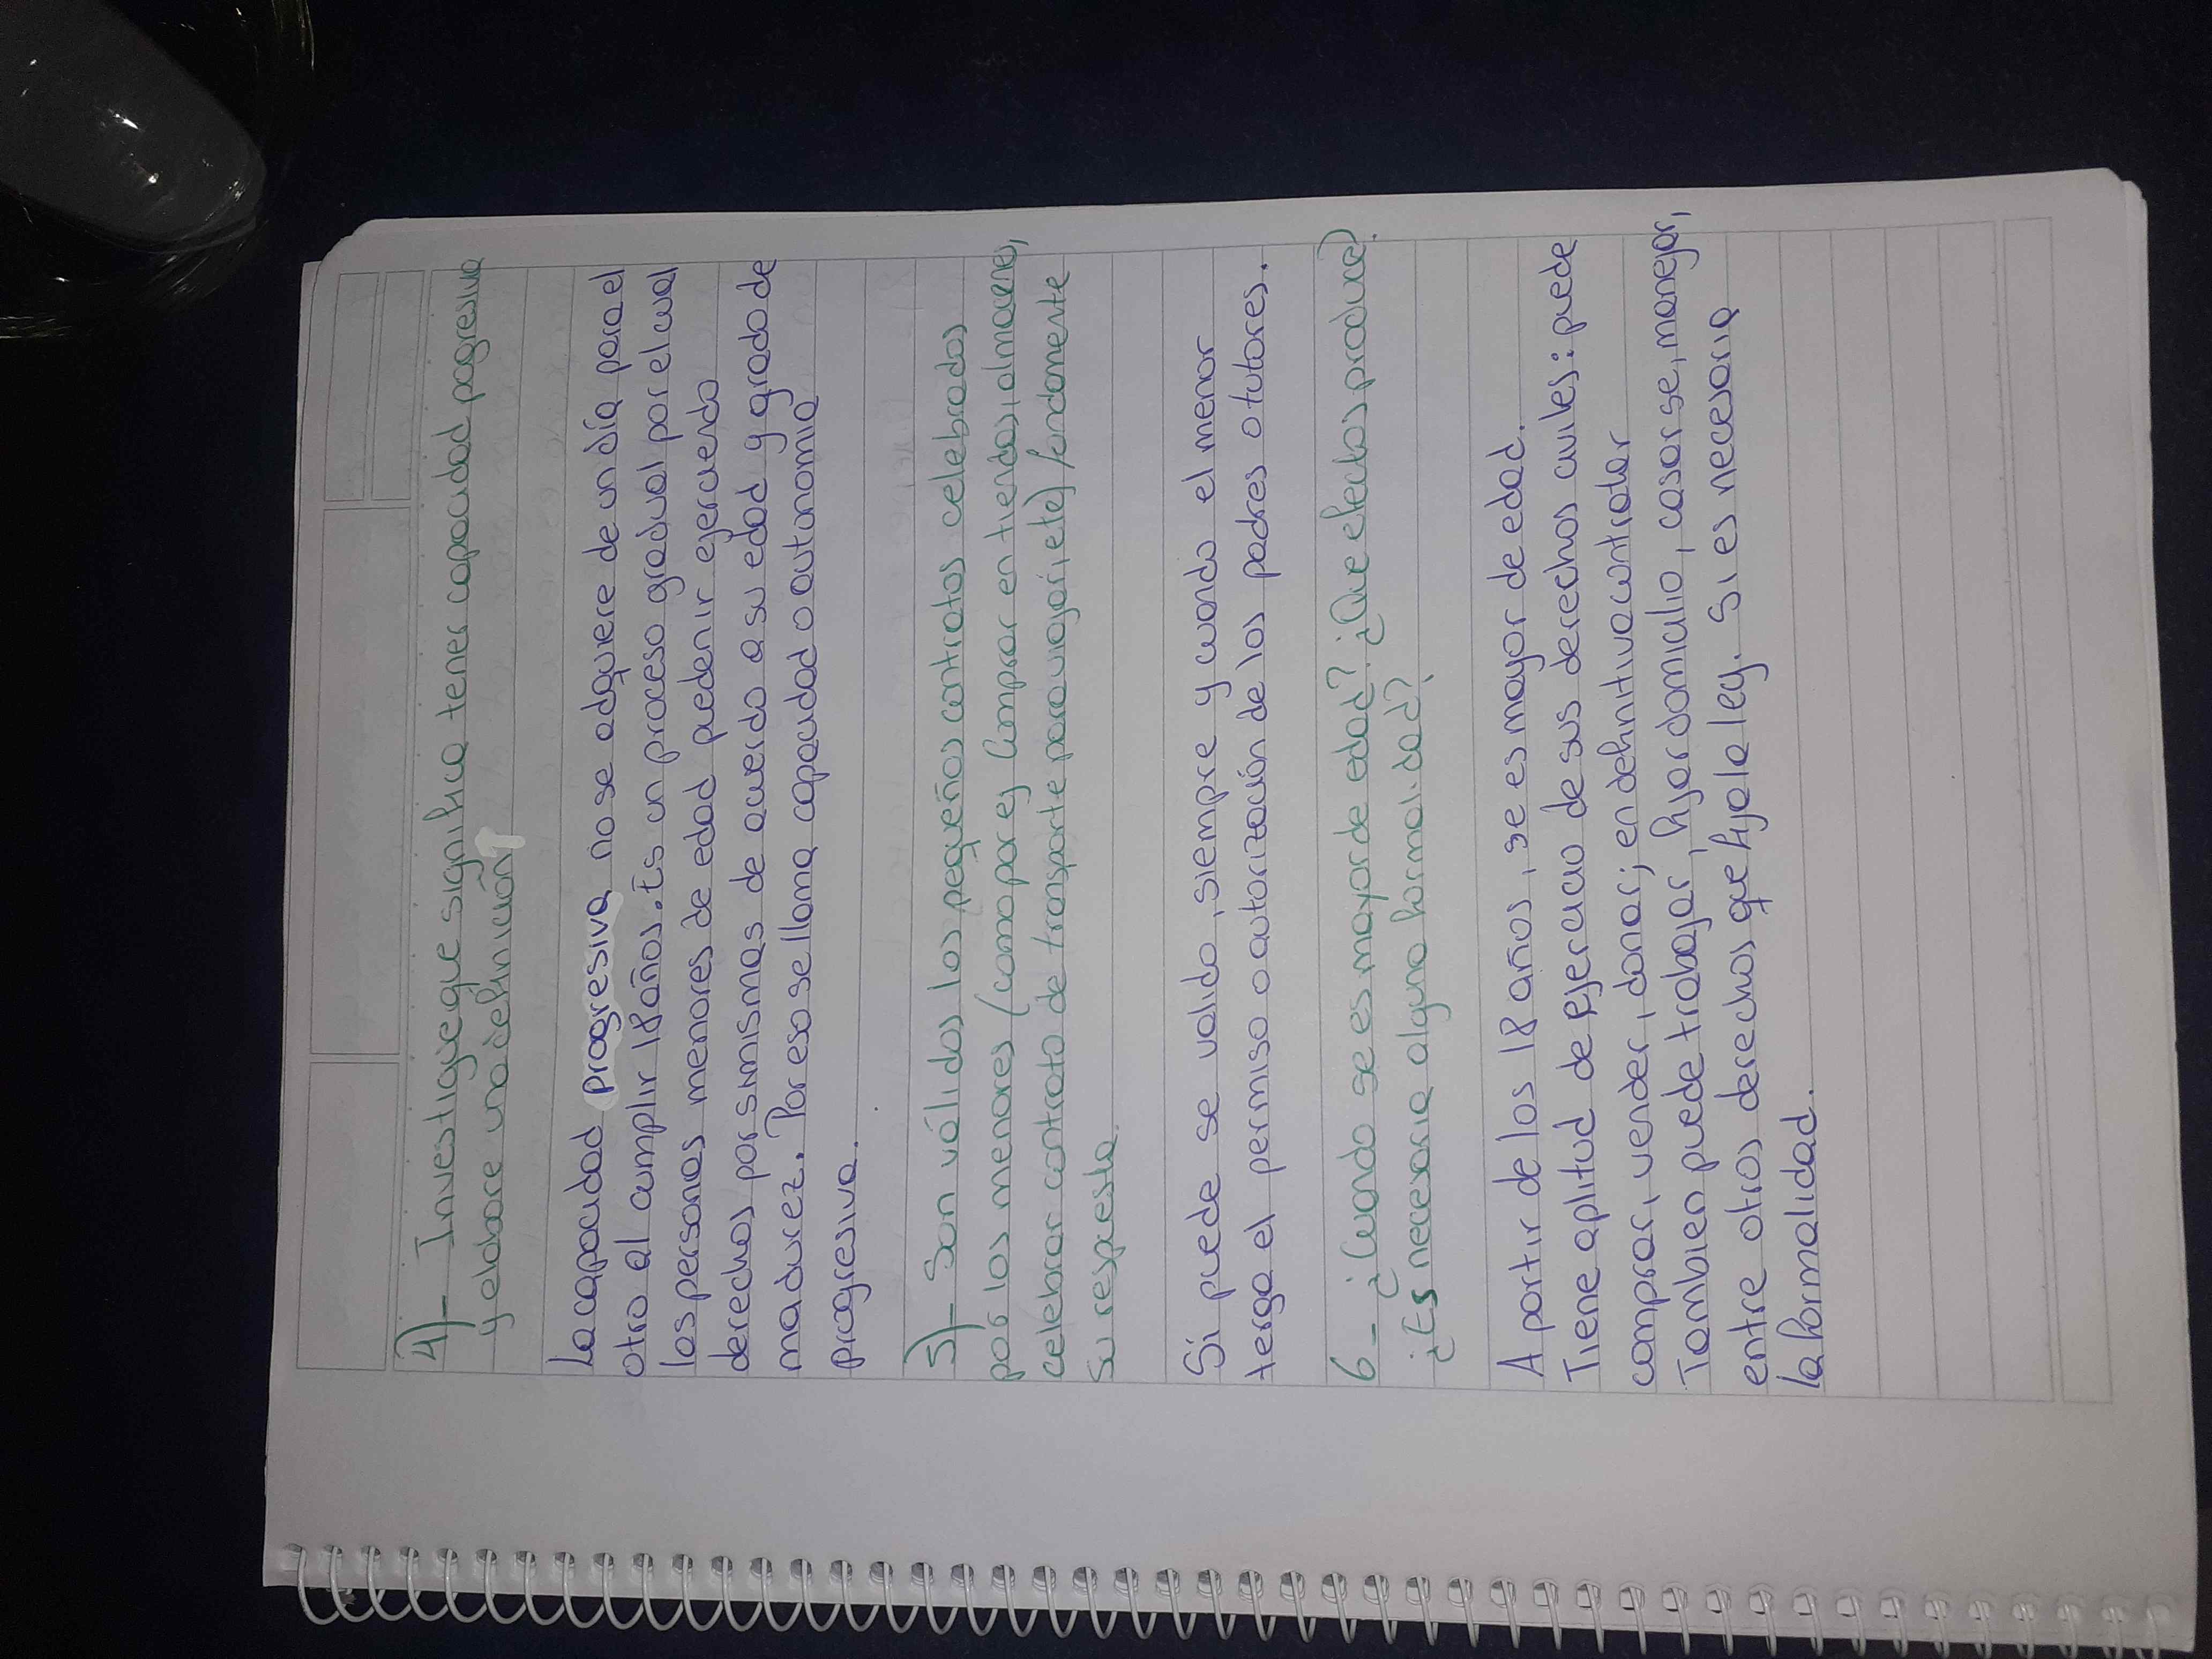 4)- Investigue que significa tener capacidad pogresiva
y elabore una definición
La capacidad progresiva, no se adquiere de un día para el
otro al cumplir 18 años. Es un proceso gradual por el cual
las personas menores de edad pueden ir ejerciendo
derechos por si mismas de acuerdo a su edad y grado de
madurez. Por eso se llama capacidad o autonomia
progresiva.
5)- Son válidos los pequeños contratos celebrados
por los menores (como por ej Comprar en tiendas, almacenes,
celebrar contrato de transporte para viajar, etc) fundamente
su respuesta.
Si puede se valido, siempre y cuando el menor
tenga el permiso o autorización de los padres o tutores.
6- ¿Cuando se es mayor de edad? ¿Que efectos produce?
¿Es necesaria alguna formalidad?
A partir de los 18 años, se es mayor de edad.
Tiene aplitud de ejercicio de sus derechos civiles: puede
comprar, vender, donar; en definitiva contratar
Tambien puede trabajar, fijar domicilio, casarse, manejar,
entre otros derechos que fija la ley. Si es necesaria
la formalidad.